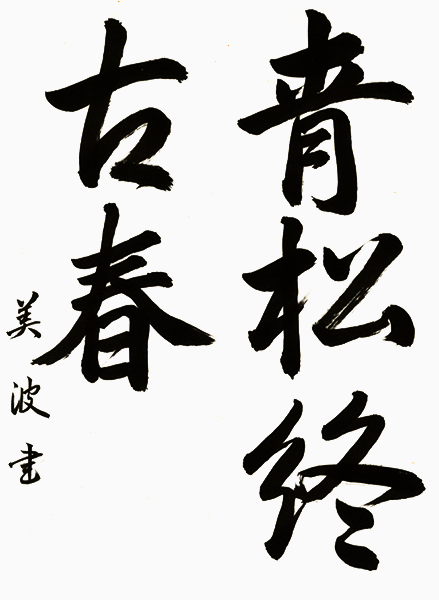 青松終
古春
美波書